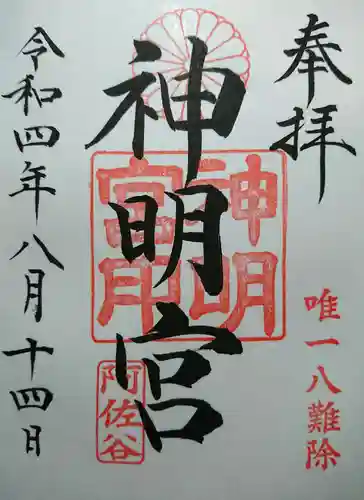 奉拝
唯一八難除
神明宮
神明宮印
阿佐谷
令和四年八月十四日